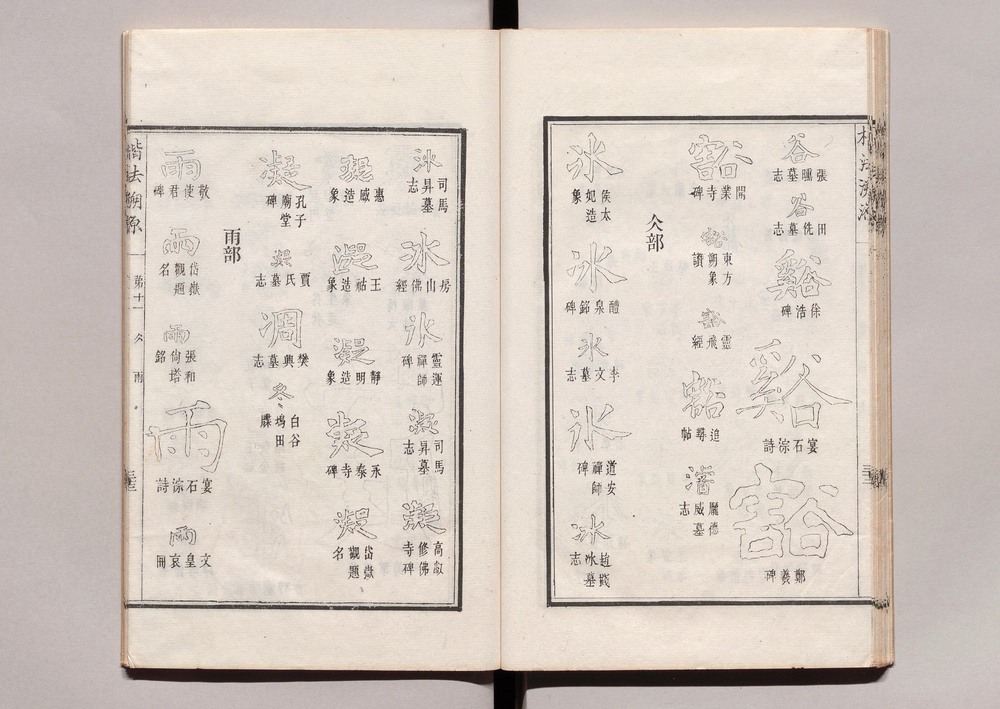 谷
張曈墓志
谷
田侁墓志
谿
徐浩碑
谿
宴石淙詩
豁
鄭羲碑
豁
開業寺碑
東方朔象讚
靈飛經
豁
追尋帖
濬
龐德威墓志
仌部
冰
侯太妃造象
冰
醴泉銘碑
冰
李文墓志
冰
道安禪師碑
冰
趙戔冰墓志
冰
司馬昇墓志
冰
房山佛經
冰
靈運禪師碑
凝
司馬昇墓志
凝
高叡修佛寺碑
凝
惠感造象
凝
王祜造象
凝
靜明造象
凝
永泰寺碑
凝
岱嶽觀題名
凝
孔子廟堂碑
凝
賈氏墓志
凋
樊興墓志
冬
白谷塢田牒
雨部
雨
敬使君碑
雨
岱嶽觀題名
雨
張和尙塔銘
雨
宴石淙詩
雨
文皇哀冊
楷法溯源
第十一
仌
雨